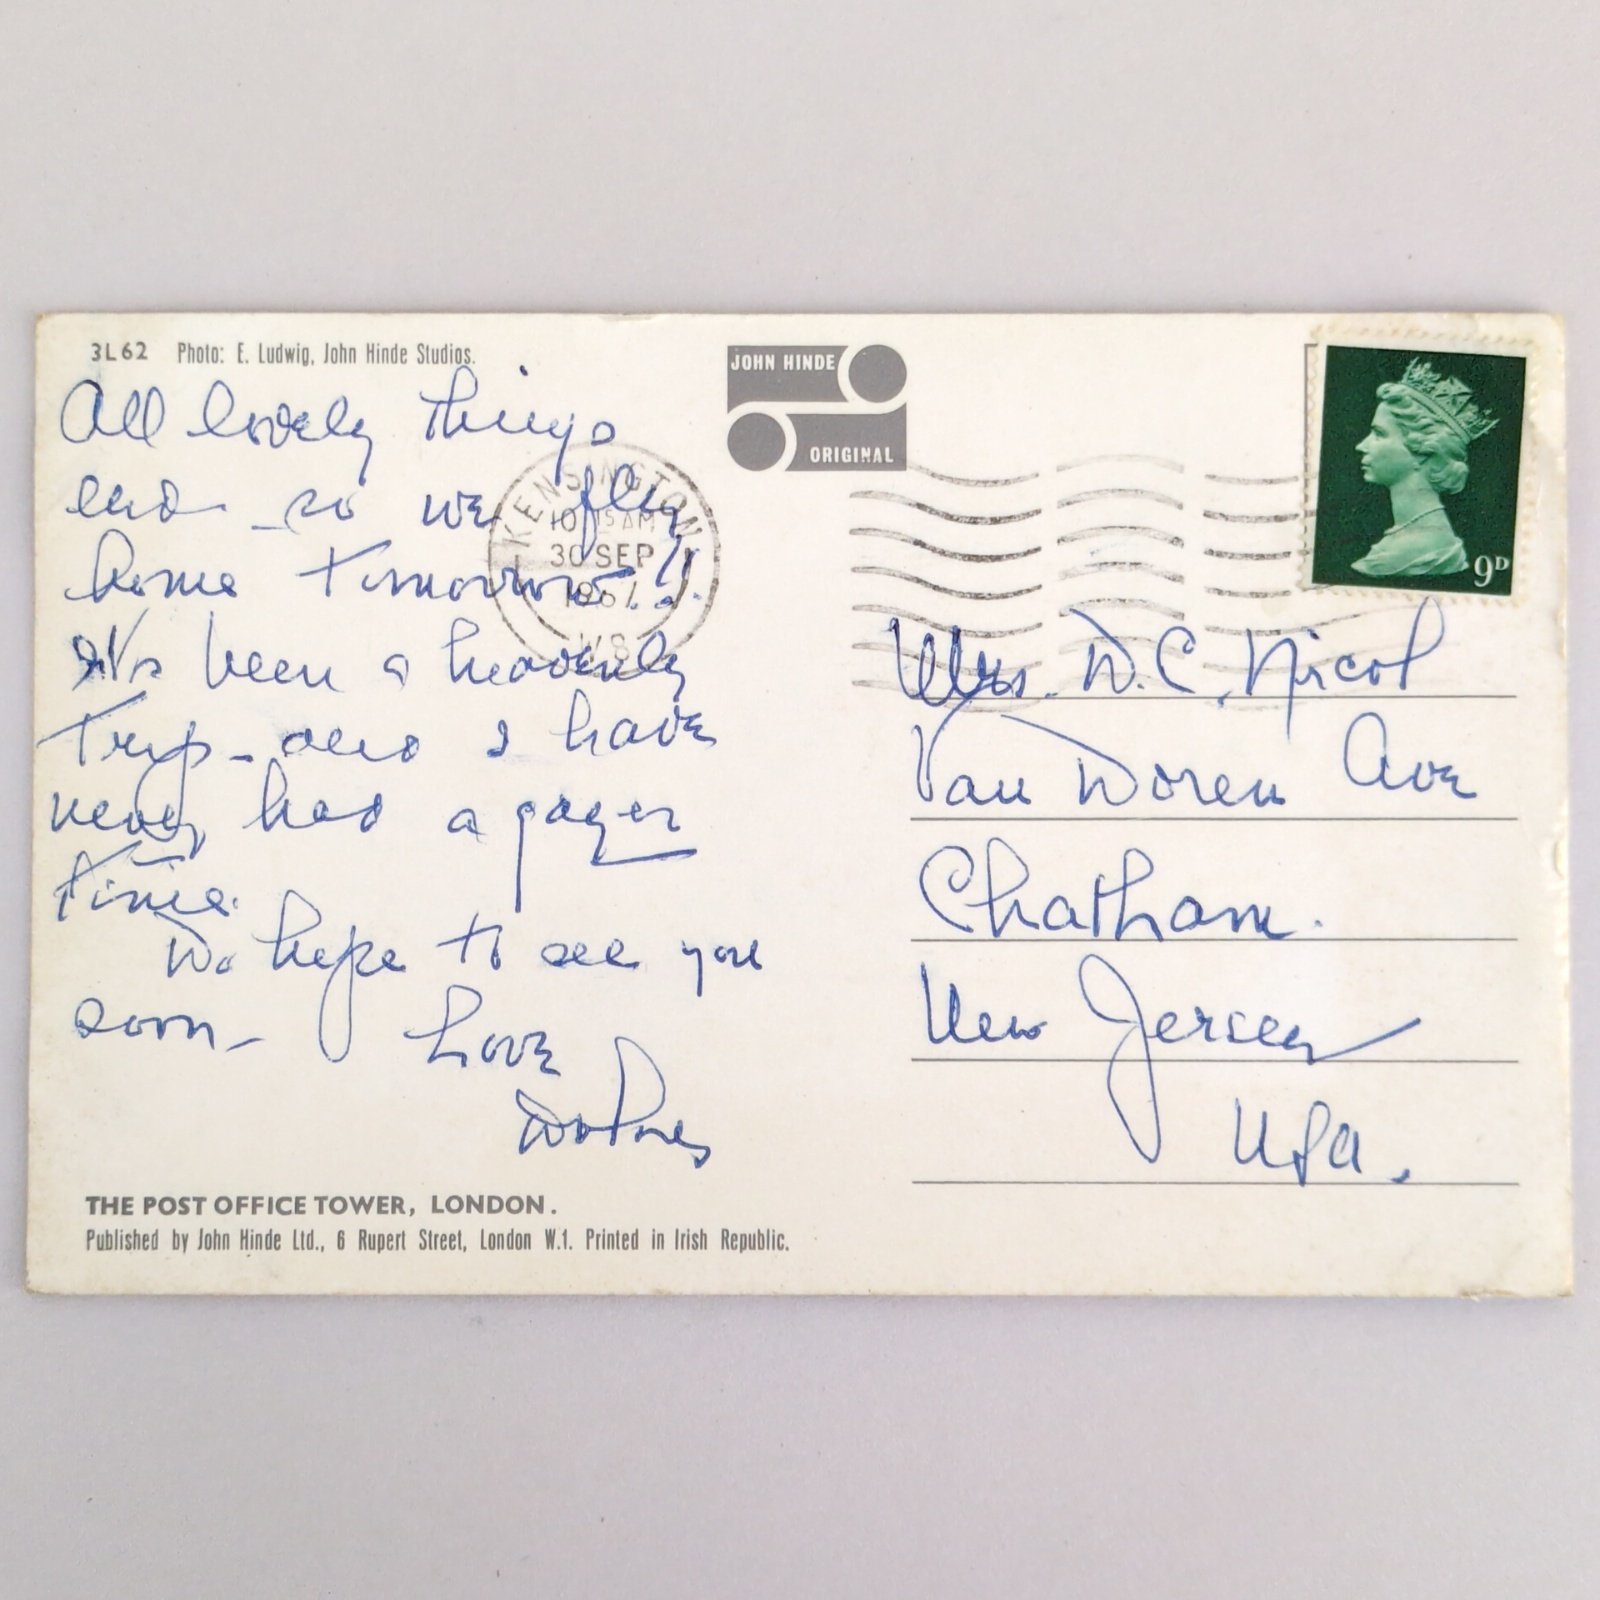 3L62 Photo: E. Ludwig, John Hinde Studios.
All lovely things
end - so we fly
home tomorrow!!
It's been a heavenly
trip - and I have
never had a gayer
time.
Do hope to see you
soon -
Love
JOHN HINDE
ORIGINAL
KENSINGTON
10 15 AM
30 SEP
1967
W8
9D
Mrs. D.C. Nicol
Van Doren Ave
Chatham.
New Jersey
USA.
THE POST OFFICE TOWER, LONDON.
Published by John Hinde Ltd., 6 Rupert Street, London W.1. Printed in Irish Republic.